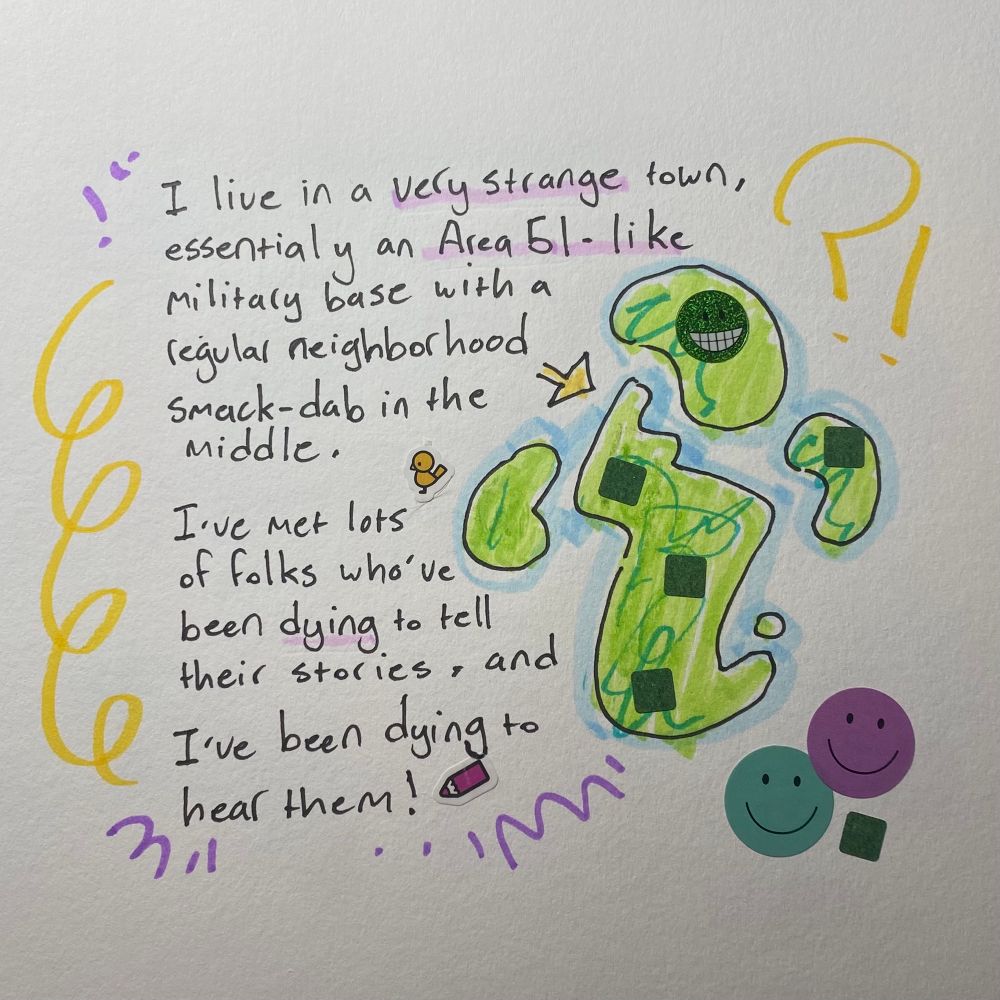 I live in a very strange town,
essentialy an Area 51-like
military base with a
regular neighborhood
smack-dab in the
middle.
I've met lots
of folks who've
been dying to tell
their stories, and
I've been dying to
hear them!
?!